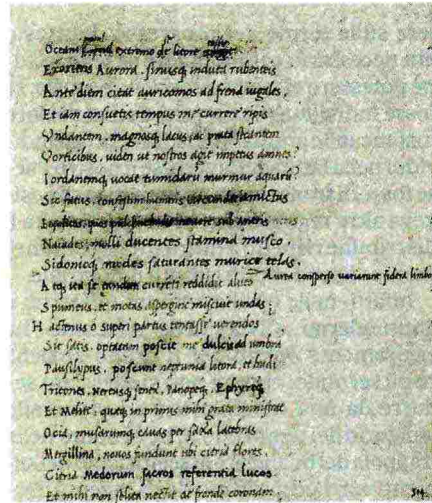 Oceani extremo de litore
Exoriens Aurora, sinusq; induta rubenteis
Ante diem citat auricomos ad frena iugales,
Et iam consuetis tempus me currere ripis
Vndantem, magnosq; lacus, ac prata secantem
Vorticibus, viden ut nostros agit impetus amnes?
Iordanemq; vocat tumidarū murmur aquarū?
Sic fatus,
sub antris
Naiades, molli ducentes stamina musco,
Sidonioq; rudes saturantes murice telas,
Aurea consperso variarunt sidera limbo
Atq; ita se tandem currēti reddidit alueo
Spumeus, et motas aspergine miscuit undas;
Hactenus ô superi partus tentasse verendos
Sit satis. optatam poscit me dulcis ad umbrā
Pausilypus, poscunt neptunia litora, et hudi
Tritones, Nereusq; senex, Panopeq; Ephyreq;
Et Melite, quaeq; in primis mihi grata ministrat
Ocia, musarumq; cauas per saxa latebras
Mergillina, nouos fundunt ubi citria flores,
Citria Medorum sacros referentia lucos
Et mihi non solita nectit de fronde coronam.